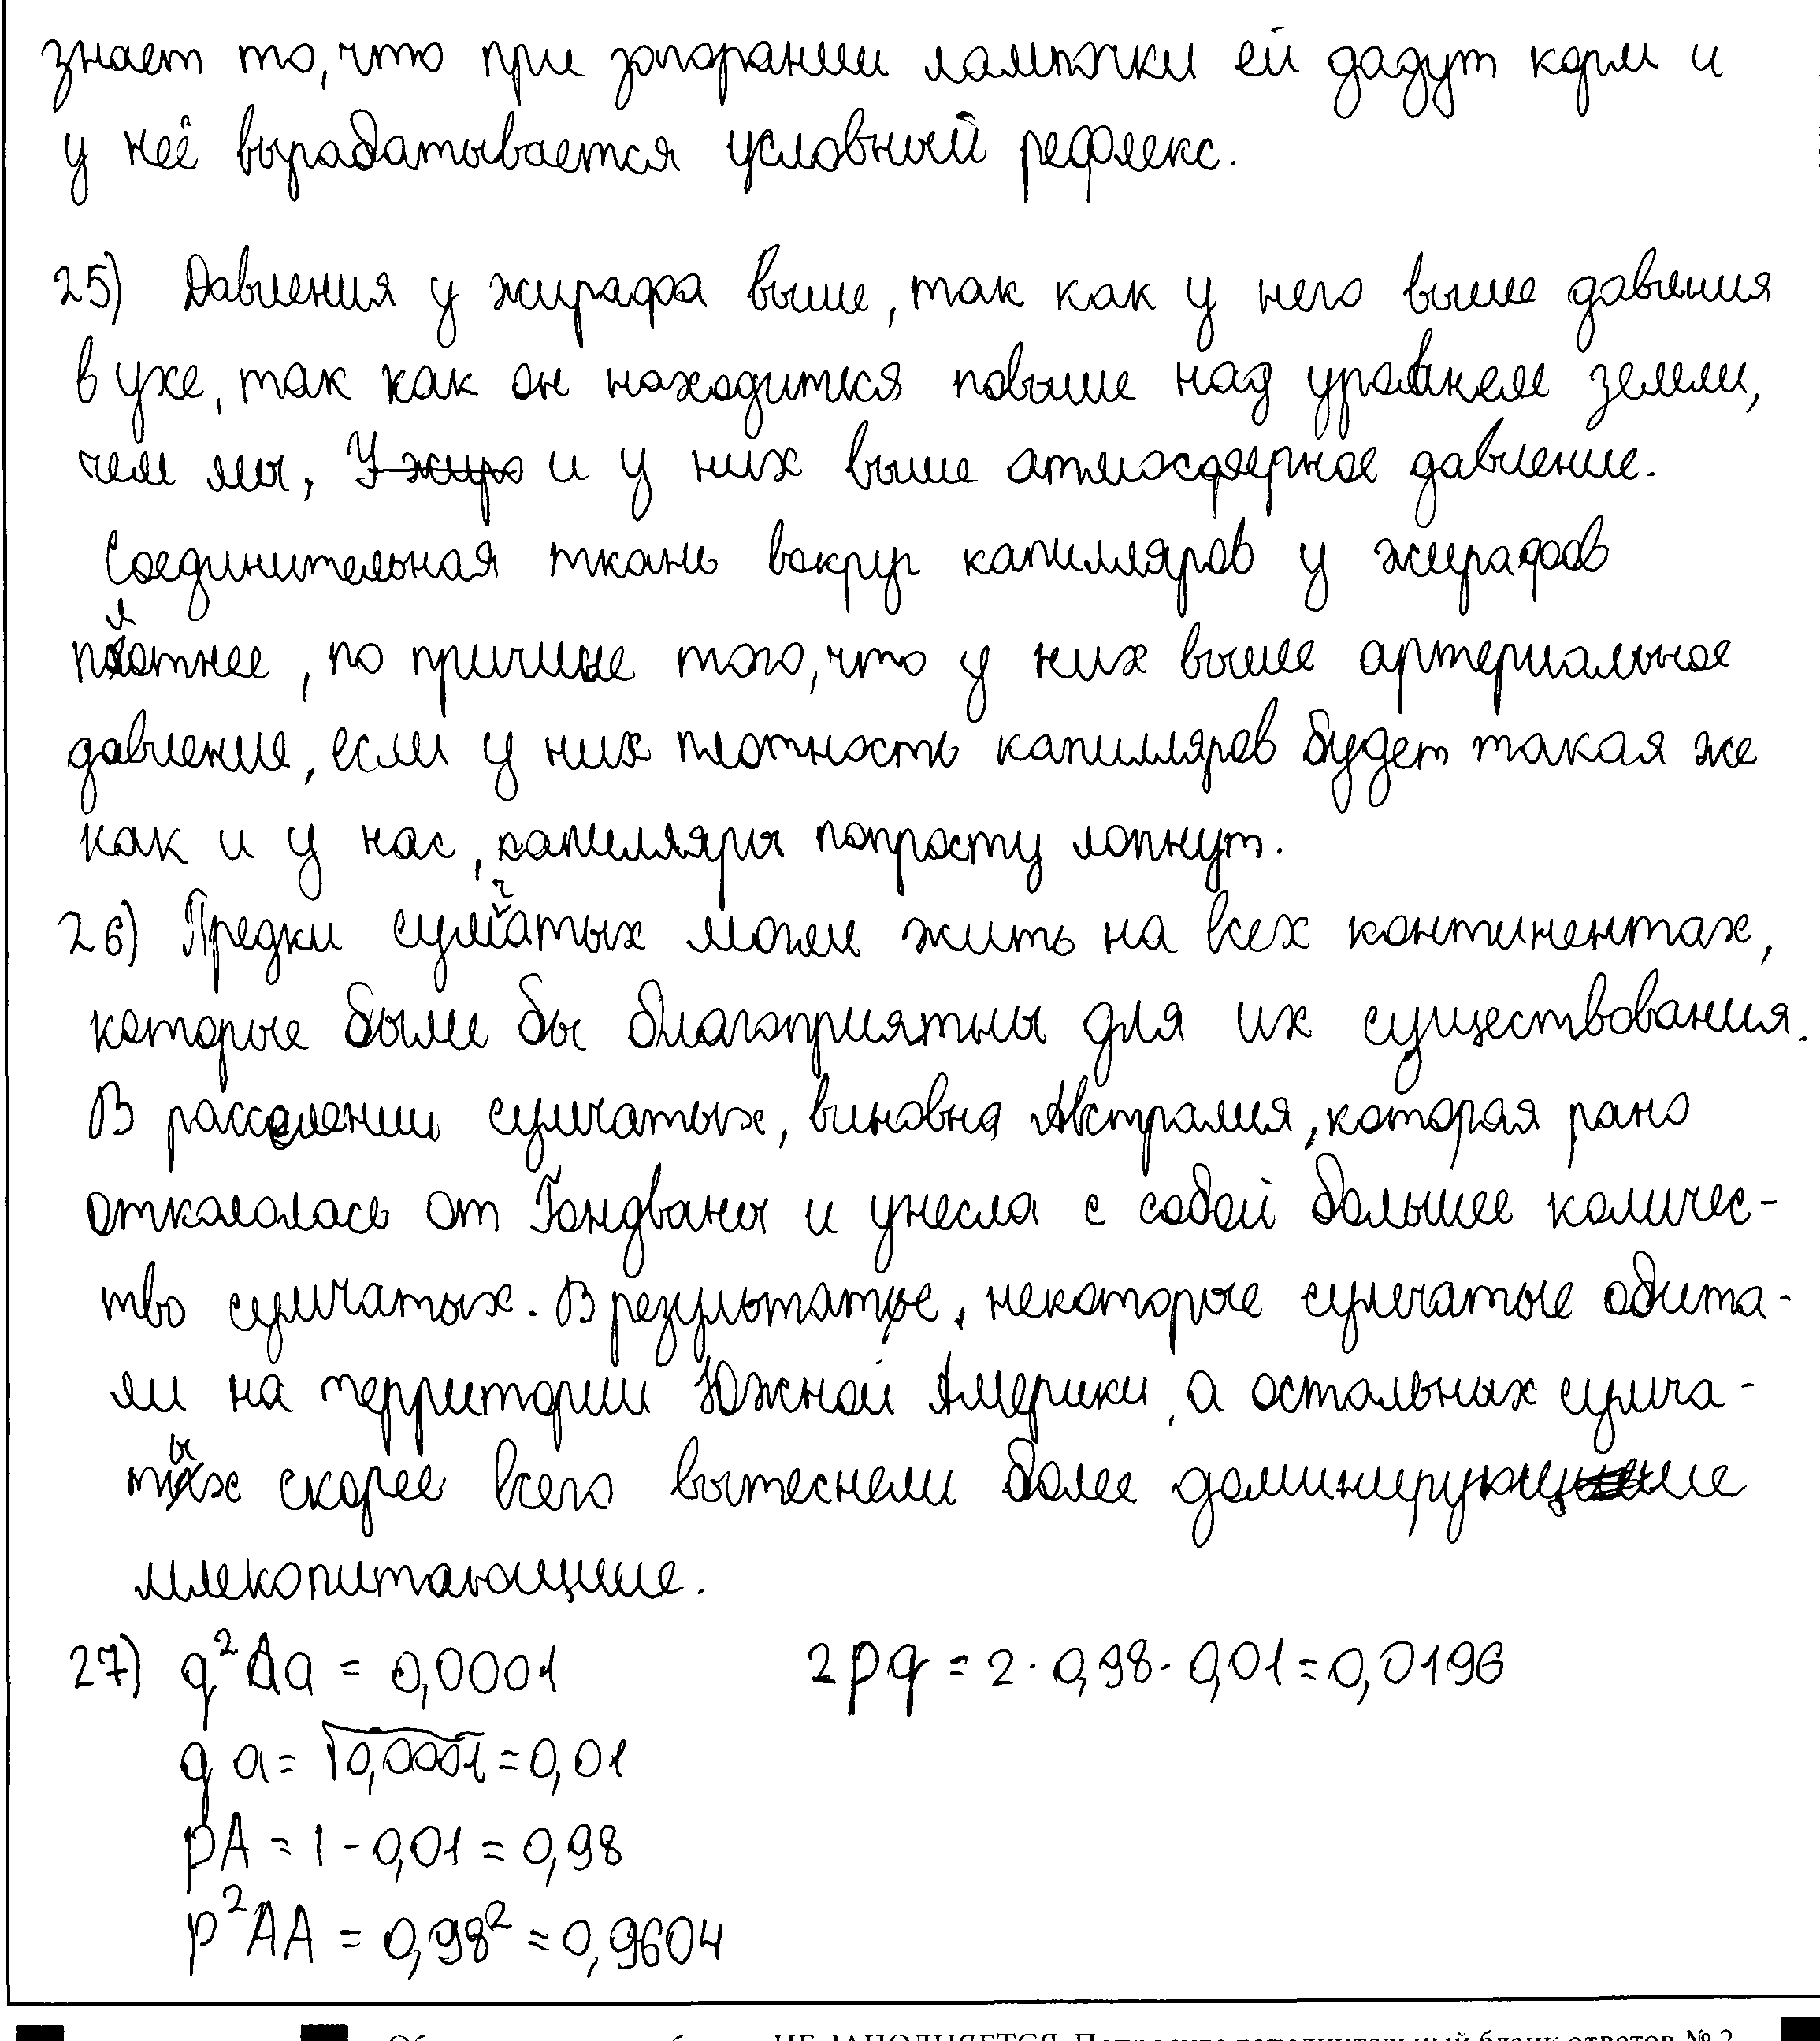 знает то, что при загорании лампочки ей дадут корм и
у неё вырабатывается условный рефлекс.
25) Давления у жирафа выше, так как у него выше давления
в ухе, так как он находится повыше над уровнем земли,
чем мы, У жира и у них выше атмосферное давление.
Соединительная ткань вокруг капилляров у жирафов
плотнее, по причине того, что у них выше артериальное
давление, если у них плотность капилляров будет такая же
как и у нас, капилляры попросту лопнут.
26) Предки сумчатых могли жить на всех континентах,
которые были бы благоприятны для их существования.
В расселении сумчатых, виновна Австралия, которая рано
откололась от Гондваны и унесла с собой большее количес-
тво сумчатых. В результате, некоторые сумчатые обита-
ли на территории Южной Америки, а остальных сумча-
тых скорее всего вытеснели более доминирующие
млекопитающие.
27) q²Aa = 0,0001 2pq = 2 · 0,98 · 0,01 = 0,0196
qa = √0,0001 = 0,01
pA = 1 - 0,01 = 0,98
p²AA = 0,98² = 0,9604
НЕ ЗАПОЛНЯЕТСЯ. Попросите дополнительный бланк ответов № 2